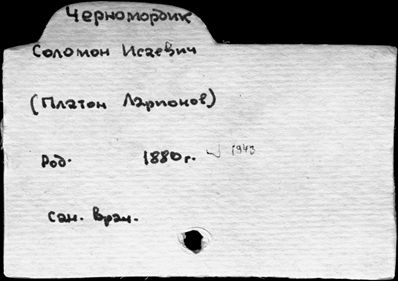 Черномордик
Соломон Исаевич
(Платон Ларионов)
Род. 1880 г. 1943
Сан. врач.